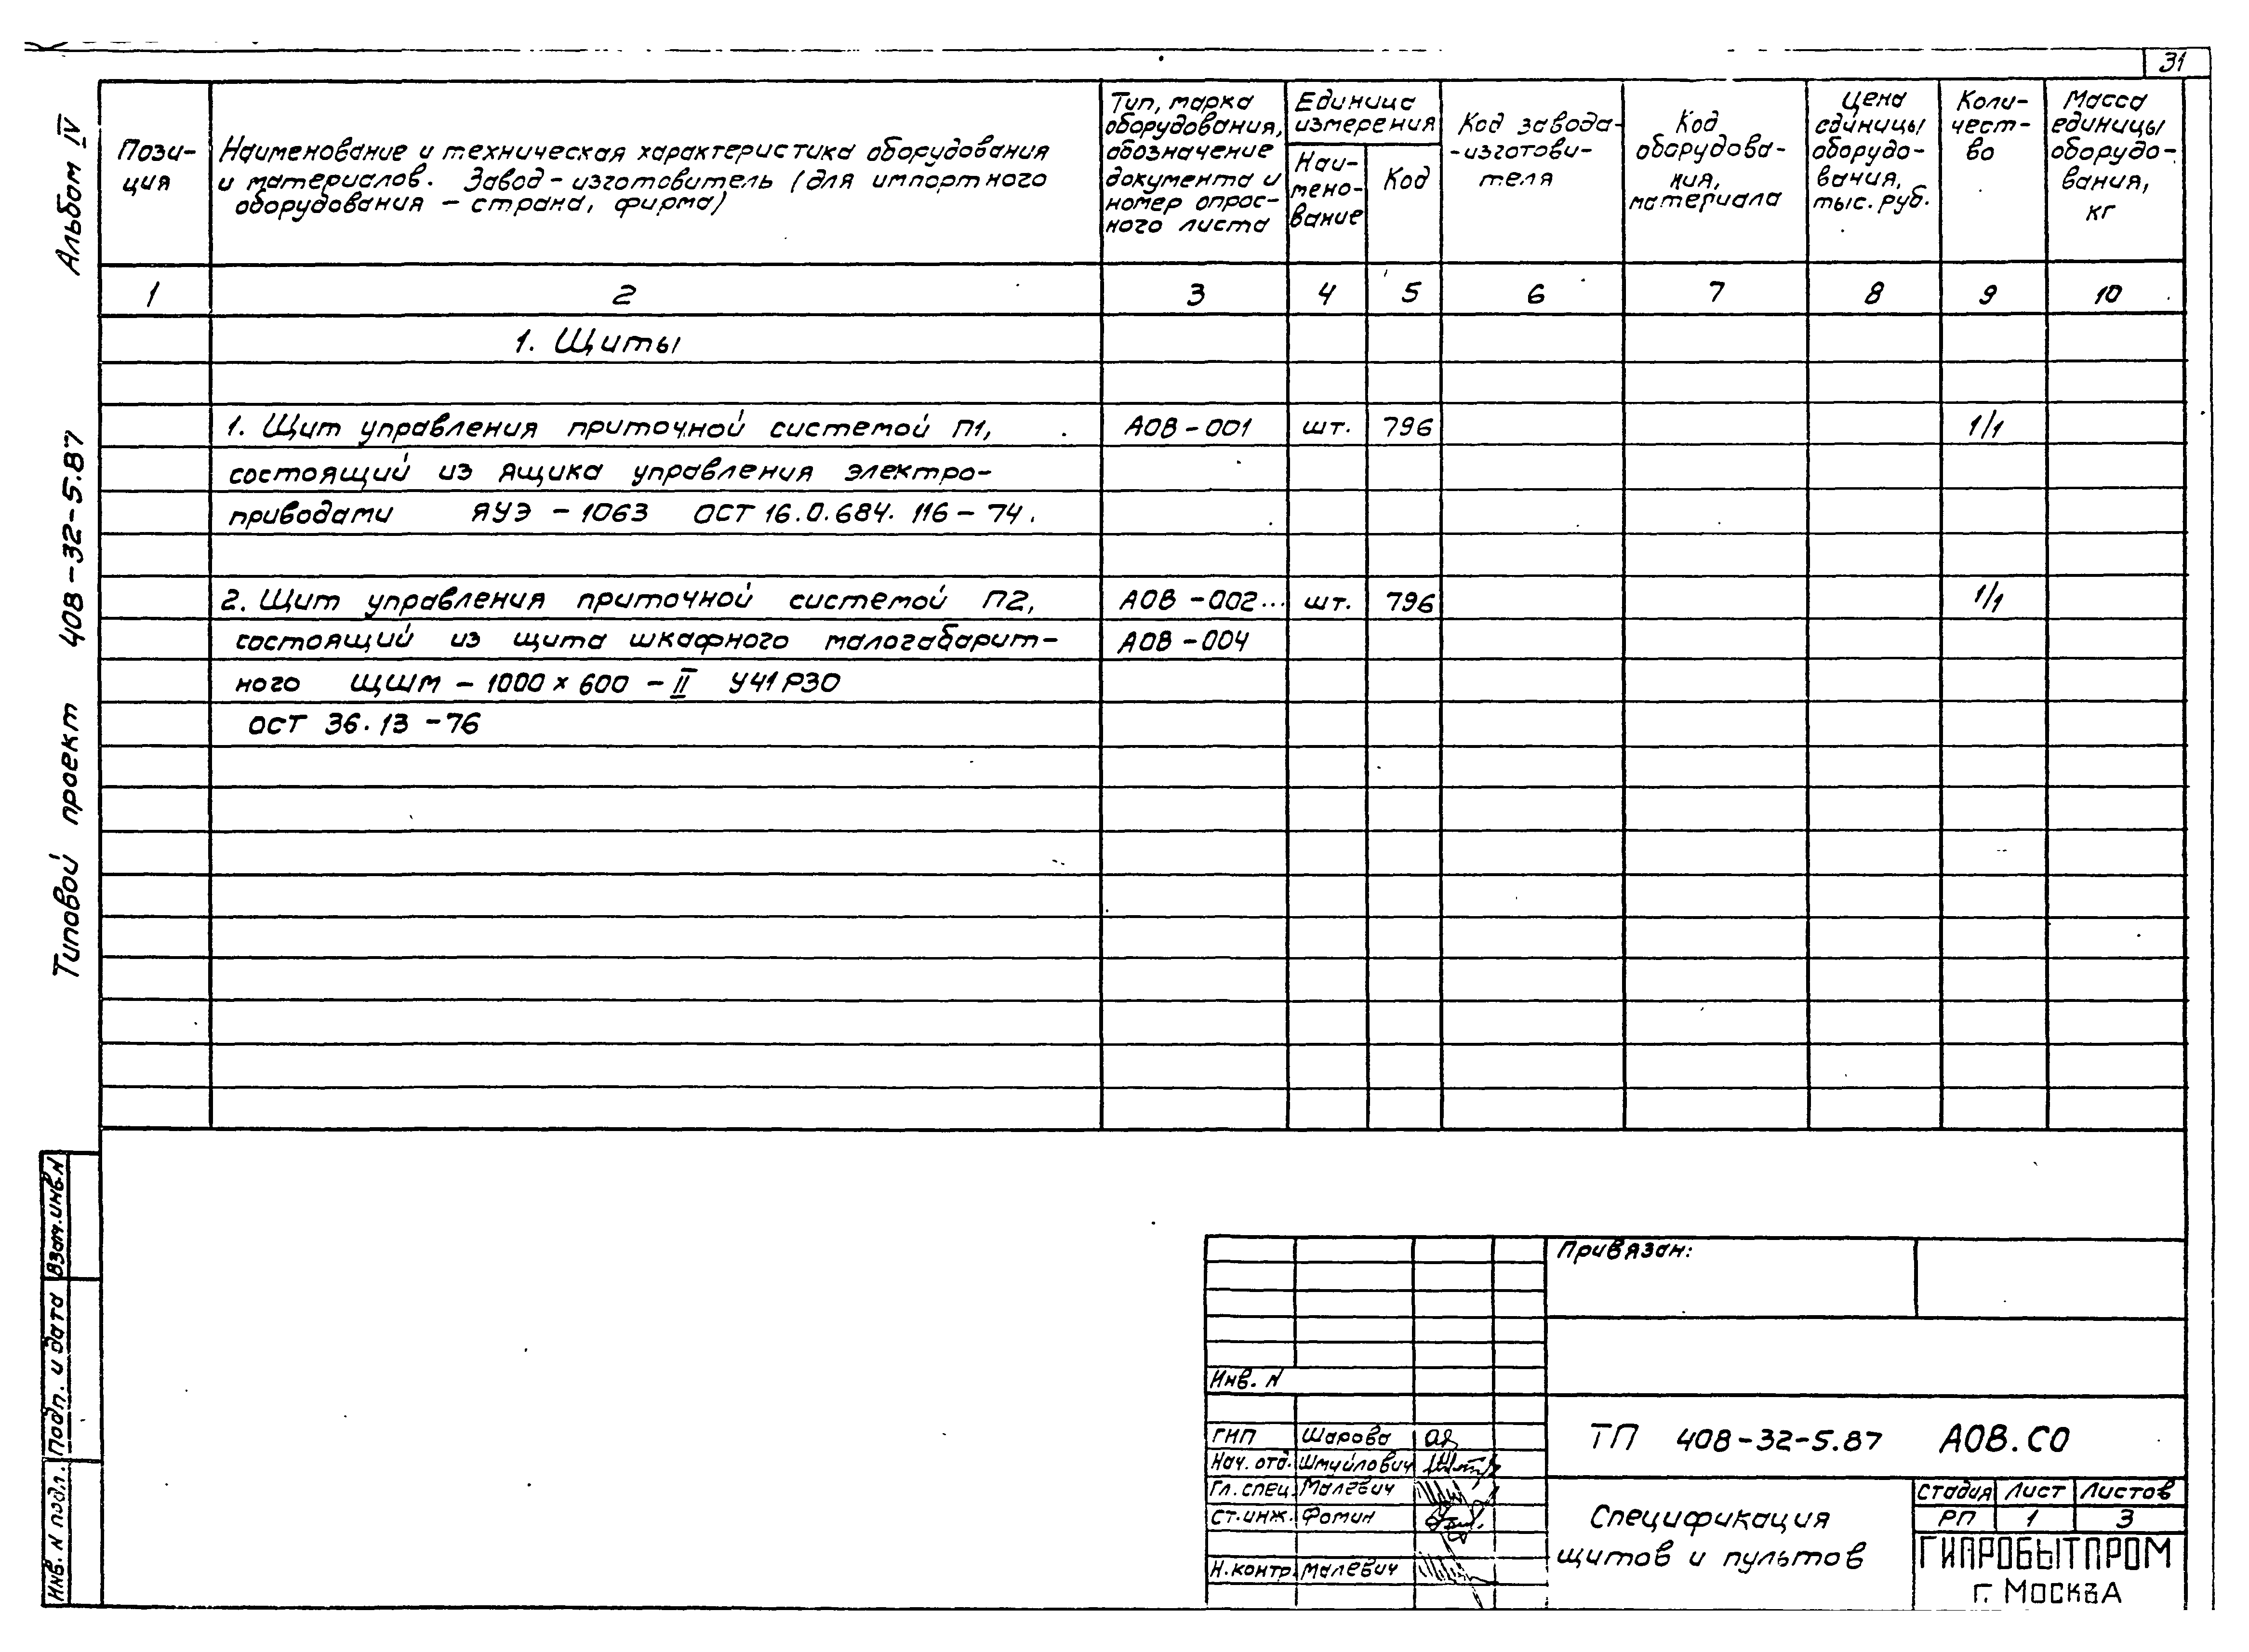 31
Альбом IV
Типовой проект 408-32-5.87
Пози-
ция
Наименование и техническая характеристика оборудования
и материалов. Завод-изготовитель (для импортного
оборудования - страна, фирма)
Тип, марка
оборудования,
обозначение
документа и
номер опрос-
ного листа
Единица
измерения
Наи-
мено-
вание
Код
Код завода-
-изготови-
теля
Код
оборудова-
ния,
материала
Цена
единицы
оборудо-
вания,
тыс. руб.
Коли-
чест-
во
Масса
единицы
оборудо-
вания,
кг
1 2 3 4 5 6 7 8 9 10
1. Щиты
1. Щит управления приточной системой П1, АОВ-001 шт. 796 1/1
состоящий из ящика управления электро-
приводами ЯУЭ-1063 ОСТ 16.0.684.116-74.
2. Щит управления приточной системой П2, АОВ-002... шт. 796 1/1
состоящий из щита шкафного малогабарит- АОВ-004
ного ЩШМ-1000х600-II У41РЗО
ОСТ 36.13-76
Взам.инв.N
Подп. и дата
Инв. N подл.
Привязан:
Инв. N
ТП 408-32-5.87 АОВ.СО
ГИП Шарова
Нач. отд. Шмуйлович
Гл. спец. Малевич
Ст.инж. Фомин
Н.контр. Малевич
Спецификация
щитов и пультов
Стадия Лист Листов
РП 1 3
ГИПРОБЫТПРОМ
г. Москва